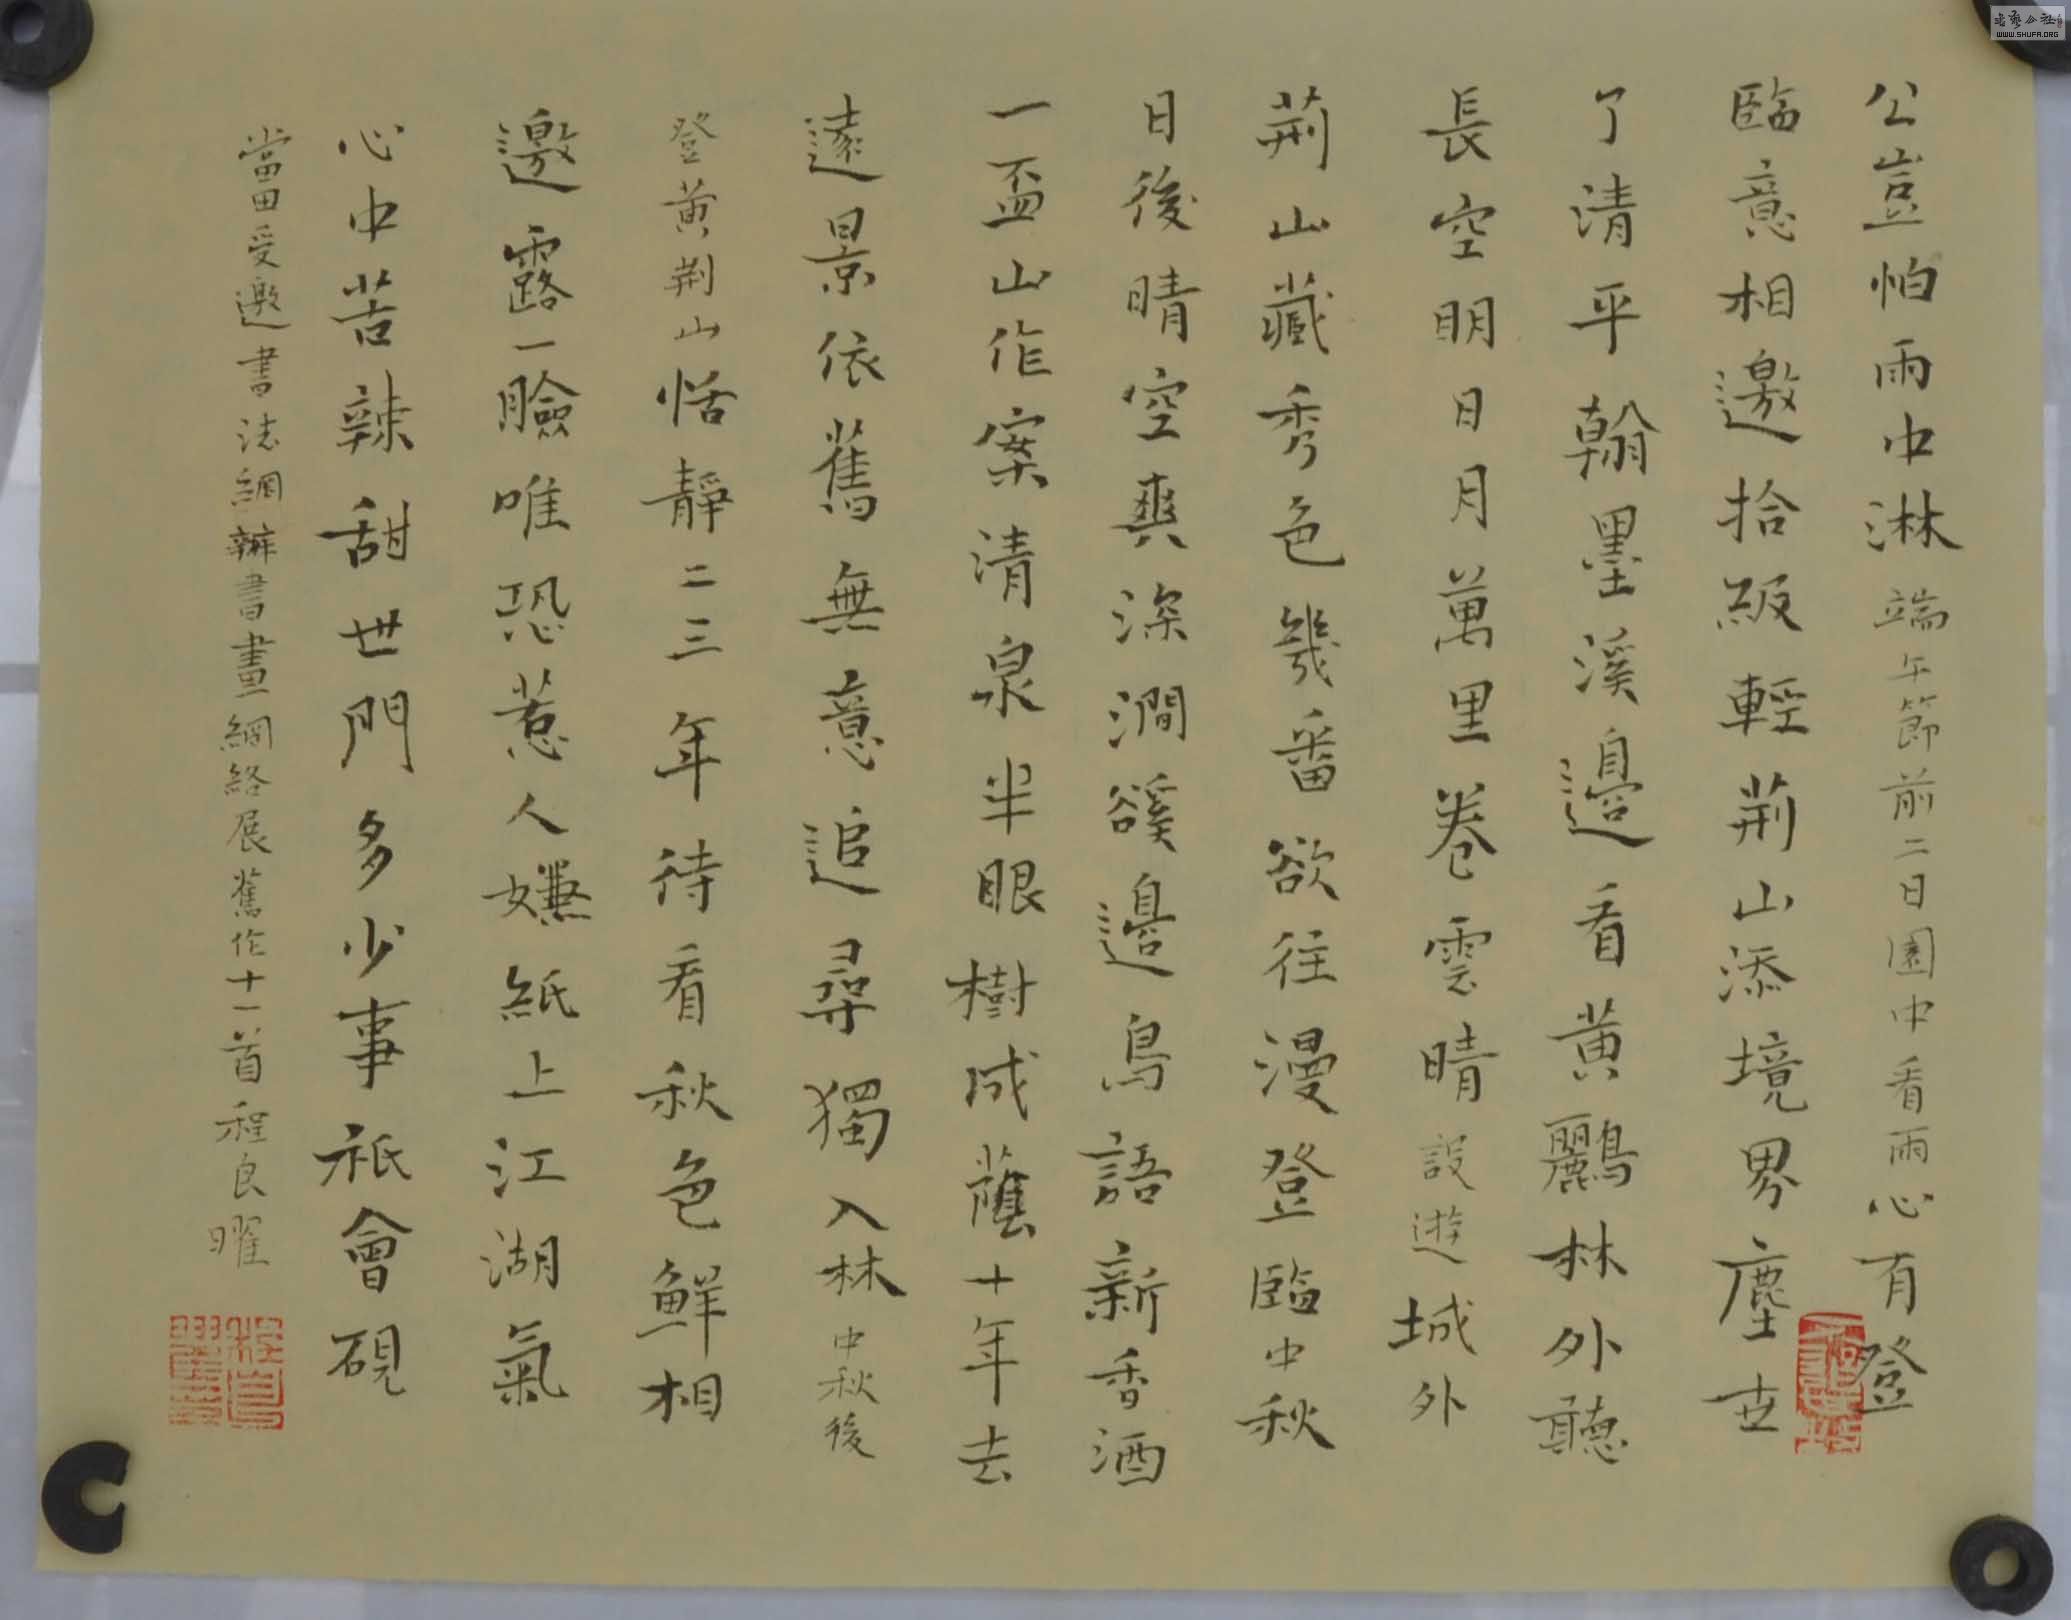 公豈怕雨中淋端午節前二日園中看雨心有登
臨意相邀拾級輕荊山添境界塵世
了清平翰墨溪邊看黃鸝林外聽
長空明日月萬里卷雲晴設遊城外
荊山藏秀色幾番欲往漫登臨中秋
日後晴空爽深澗谿邊鳥語新香酒
一盃山作案清泉半眼樹成蔭十年去
遠景依舊無意追尋獨入林中秋後
登黃荊山恬靜二三年待看秋色鮮相
邀露一臉唯恐惹人嫌紙上江湖氣
心中苦辣甜世門多少事祇會硯
當田受邀書法網辦書畫網絡展舊作十一首程良曜
WWW.SHUFA.ORG